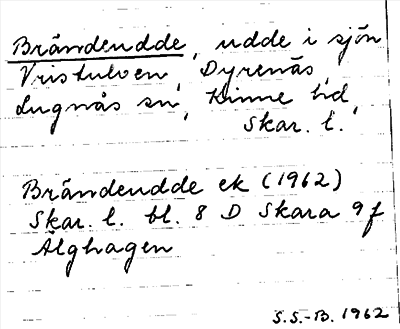 Brändendde, udde i sjön
Vristulven, Dyrenäs,
Lugnås sn, Kinne hd,
Skar. l.
Brändendde ek (1962)
Skar. l. bl. 8 D Skara 9f
Älghagen
S.S.-B. 1962